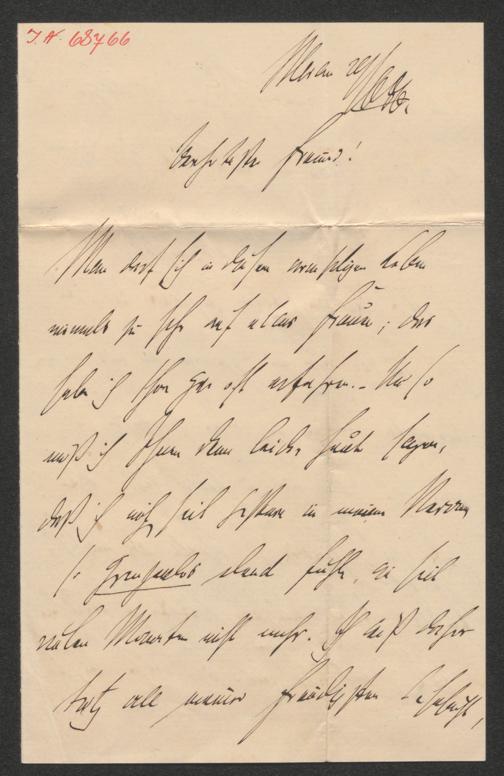 I. N. 68766
Meran
Verehrtester Freund!
Man darf sich in diesem armseligen Leben
niemals zu sehr auf etwas freuen; das
habe ich schon gar oft erfahren. – Und so
muß ich Ihnen denn leider heute sagen,
daß ich mich seit gestern in meinen Nerven
so grenzenlos elend fühle, wie seit
vielen Monaten nicht mehr. Ich muß daher
trotz all meiner freudigsten